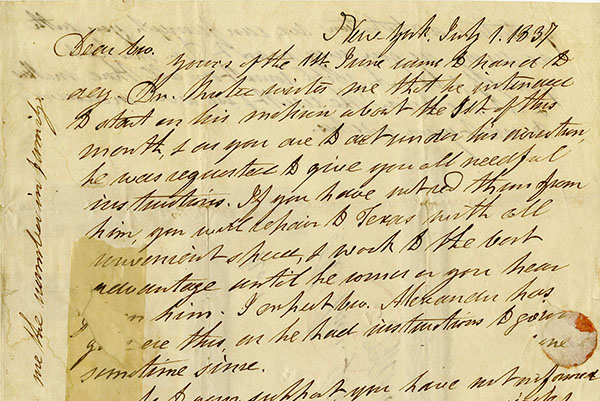 New York, July 1. 1837
Dear bro.
Yours of the 1st. June came to hand to
day. Br. Ruter writes me that he intended
to start on his mission about the 1st. of this
month, & as you are to act under his direction,
he was requested to give you all needful
instructions. If you have not recd them from
him, you will repair to Texas with all
convenient speed, & work to the best
advantage until he comes or you hear
him. I expect bro. Alexander has
ere this, as he had instructions to go
sometime since.
you have not informed
me the number in family.